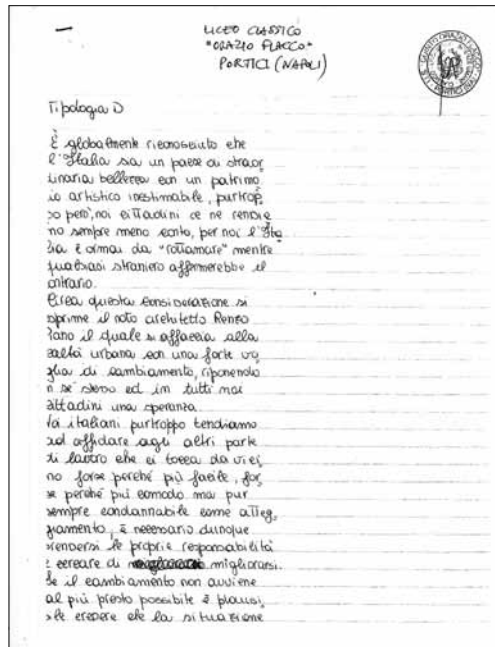 LICEO CLASSICO
"ORAZIO FLACCO"
PORTICI (NAPOLI)
Tipologia D
È globalmente riconosciuto che
l'Italia sia un paese di straor
dinaria bellezza con un patrimo
io artistico inestimabile, purtrop
po però, noi cittadini ce ne rendia
mo sempre meno conto, per noi l'Ita
lia è ormai da "rottamare" mentre
qualsiasi straniero affermerebbe il
ontrario.
Circa questa considerazione si
sprime il noto architetto Renzo
iano il quale si affaccia alla
ealtà urbana con una forte vo
glia di cambiamento, riponendo
n sé stesso ed in tutti noi
cittadini una speranza.
Noi italiani purtroppo tendiamo
ad affidare agli altri parte
di lavoro che ci tocca da vici
no forse perché più facile, for
se perché più comodo ma pur
sempre condannabile come atteg
giamento, è necessario dunque
prendersi le proprie responsabilità
e cercare di migliorarsi.
Se il cambiamento non avviene
al più presto possibile è plausi
bile credere che la situazione